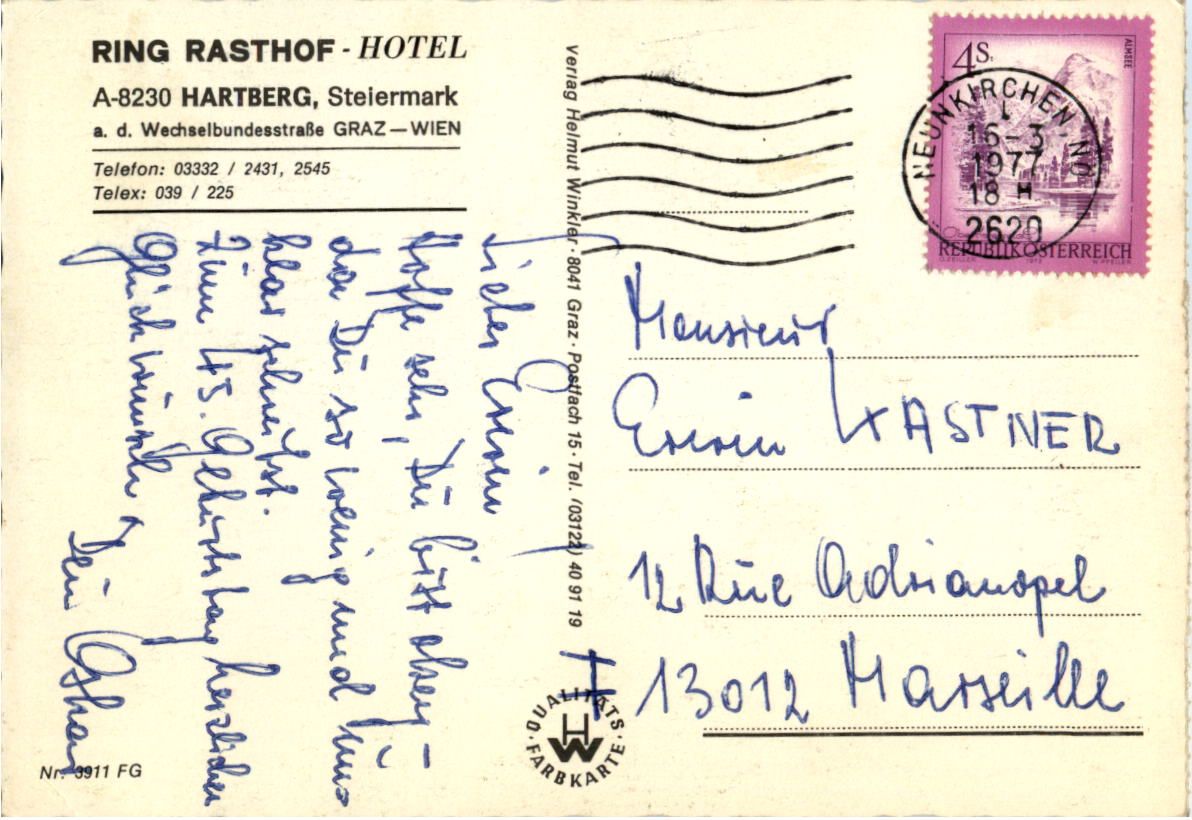 RING RASTHOF - HOTEL
A-8230 HARTBERG, Steiermark
a. d. Wechselbundesstraße GRAZ — WIEN
Telefon: 03332 / 2431, 2545
Telex: 039 / 225
Lieber Erwin!
Hoffe sehr, Du bist
da Du so wenig und
klar schreibst.
Zum 45. Geburtstag herzlichen
Glückwunsch,
Dein
Nr. 3911 FG
Verlag Helmut Winkler · 8041 Graz · Postfach 15 · Tel. (03122) 40 91 19
QUALITÄTS · FARBKARTE ·
HW
4 S
ALMSEE
NEUNKIRCHEN, NÖ
16-3
1977
18 H
2620
REPUBLIK ÖSTERREICH
Monsieur
Erwin KASTNER
12 Rue Adrianopel
13012 Marseille